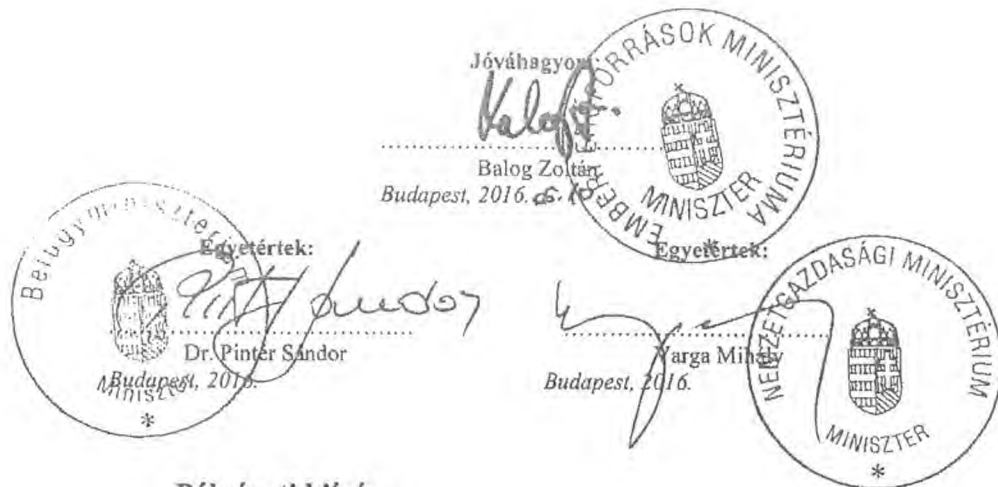 Jóváhagyom:
Balog Zoltán
Budapest, 2016. 05. 10
EMBERI ERŐFORRÁSOK MINISZTÉRIUMA
MINISZTER
*
Egyetértek:
Dr. Pintér Sándor
Budapest, 2016.
Belügyminisztérium
Miniszter
*
Egyetértek:
Varga Mihály
Budapest, 2016.
NEMZETGAZDASÁGI MINISZTÉRIUM
MINISZTER
*